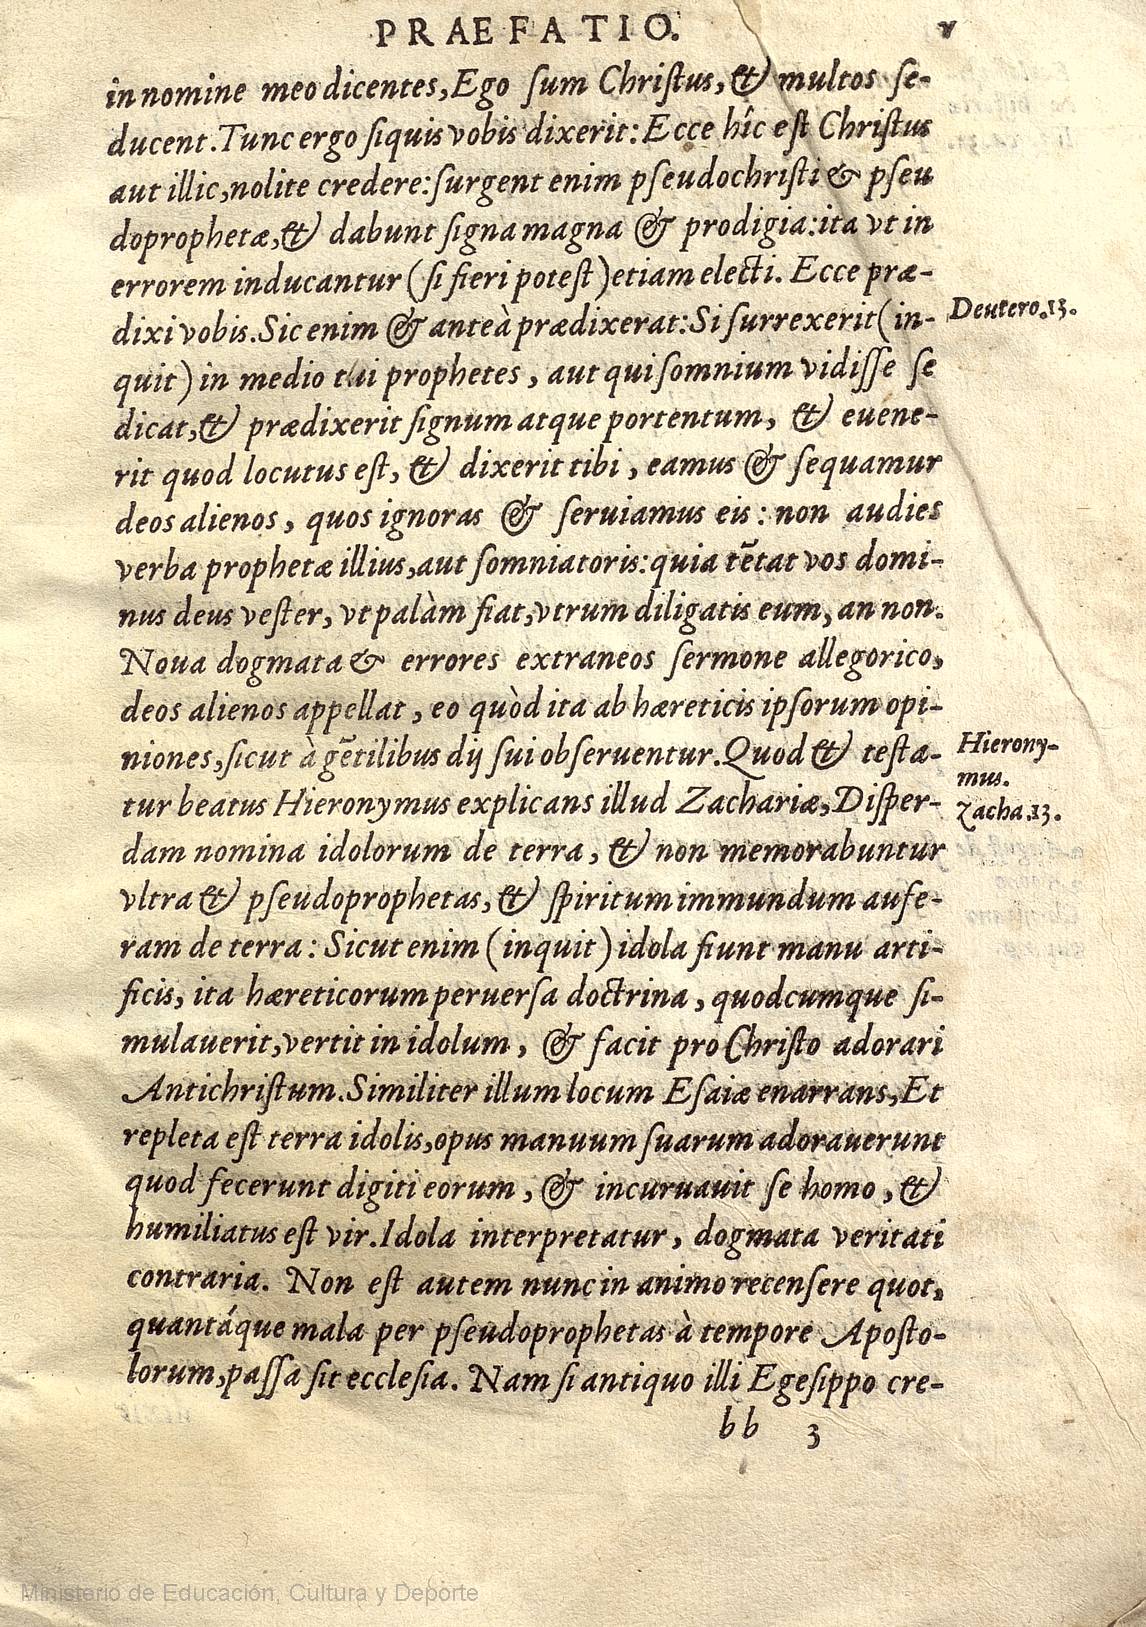 PRAEFATIO. v
in nomine meo dicentes, Ego ſum Chriſtus, & multos ſe-
ducent. Tunc ergo ſiquis vobis dixerit: Ecce hîc eſt Chriſtus
aut illic, nolite credere: ſurgent enim pſeudochriſti & pſeu
doprophetæ, & dabunt ſigna magna & prodigia: ita vt in
errorem inducantur (ſi fieri poteſt) etiam electi. Ecce præ-
dixi vobis. Sic enim & anteà prædixerat: Si ſurrexerit (in-
Deutero.13.
quit) in medio tui prophetes, aut qui ſomnium vidiſſe ſe
dicat, & prædixerit ſignum atque portentum, & euene-
rit quod locutus eſt, & dixerit tibi, eamus & ſequamur
deos alienos, quos ignoras & ſeruiamus eis: non audies
verba prophetæ illius, aut ſomniatoris: quia tētat vos domi-
nus deus veſter, vt palàm fiat, vtrum diligatis eum, an non.
Noua dogmata & errores extraneos ſermone allegorico,
deos alienos appellat, eo quòd ita ab hæreticis ipſorum opi-
niones, ſicut à gētilibus dij ſui obſeruentur. Quod & teſta-
Hierony-
mus.
tur beatus Hieronymus explicans illud Zachariæ, Diſper-
Zacha.13.
dam nomina idolorum de terra, & non memorabuntur
vltra & pſeudoprophetas, & ſpiritum immundum aufe-
ram de terra: Sicut enim (inquit) idola fiunt manu arti-
ficis, ita hæreticorum peruerſa doctrina, quodcumque ſi-
mulauerit, vertit in idolum, & facit pro Chriſto adorari
Antichriſtum. Similiter illum locum Eſaiæ enarrans, Et
repleta eſt terra idolis, opus manuum ſuarum adorauerunt
quod fecerunt digiti eorum, & incuruauit ſe homo, &
humiliatus eſt vir. Idola interpretatur, dogmata veritati
contraria. Non eſt autem nunc in animo recenſere quot,
quantáque mala per pſeudoprophetas à tempore Apoſto-
lorum, paſſa ſit eccleſia. Nam ſi antiquo illi Egeſippo cre-
bb 3
Ministerio de Educación, Cultura y Deporte